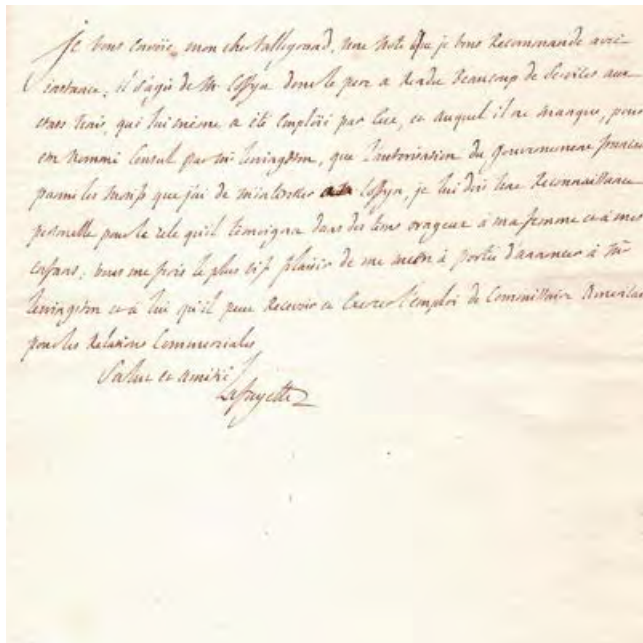 Je vous envoie, mon cher Talleyrand, une note que je vous recommande avec
instance; il s'agit de Mr Coffyn dont le pere a rendu beaucoup de services aux
etats unis, qui lui meme a été emploié par eux, et auquel il ne manque, pour
etre nommé Consul par Mr Livingston, que l'autorisation du gouvernement francais
parmi les motifs que j'ai de m'interesser a Coffyn, je lui dois une reconnaissance
personelle pour le zele qu'il temoigna dans des tems orageux à ma femme et à mes
enfans; vous me ferés le plus vif plaisir de me mettre à portée d'annoncer à Mr
Livingston et à lui qu'il peut recevoir et exercer l'emploi de Commissaire Americain
pour les relations Commerciales
Salut et amitié
Lafayette